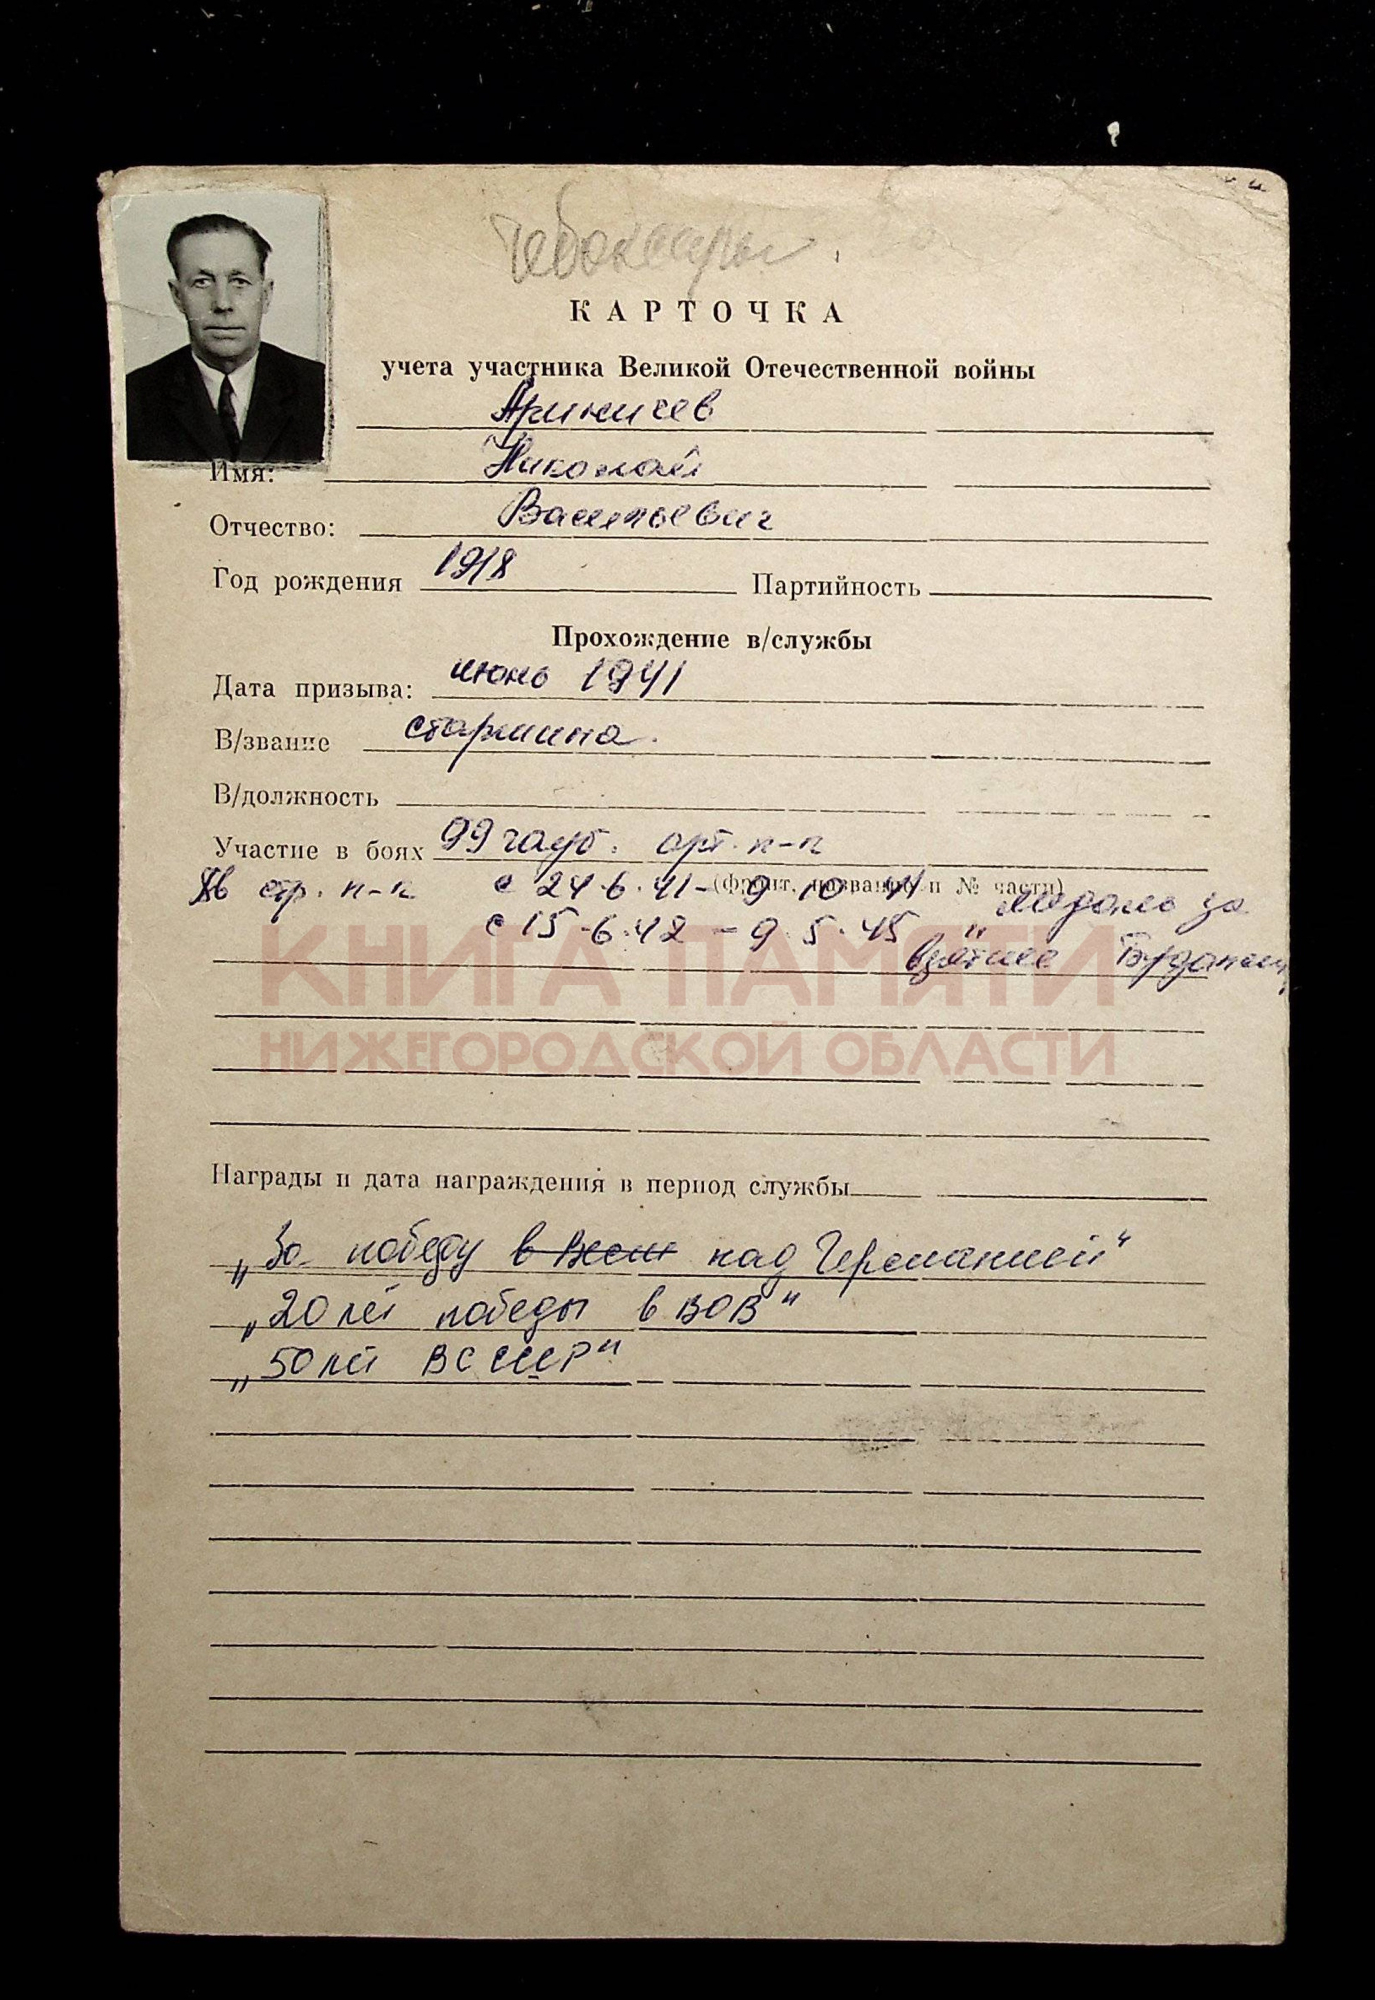 Чебоксары
КАРТОЧКА
учета участника Великой Отечественной войны
Ариничев
Имя: Николай
Отчество: Васильевич
Год рождения 1918 Партийность
Прохождение в/службы
Дата призыва: июнь 1941
В/звание старшина.
В/должность
Участие в боях 99 гауб. арт. п-п
(фронт, название и № части)
стр. п-п с 24.6.41 - 9.10.41 "медаль за
с 15.6.42 - 9.5.45 взятие
КНИГА ПАМЯТИ
НИЖЕГОРОДСКОЙ ОБЛАСТИ
Награды и дата награждения в период службы
„За победу в над Германией"
„20 лет победы в ВОВ"
„50 лет ВС СССР"